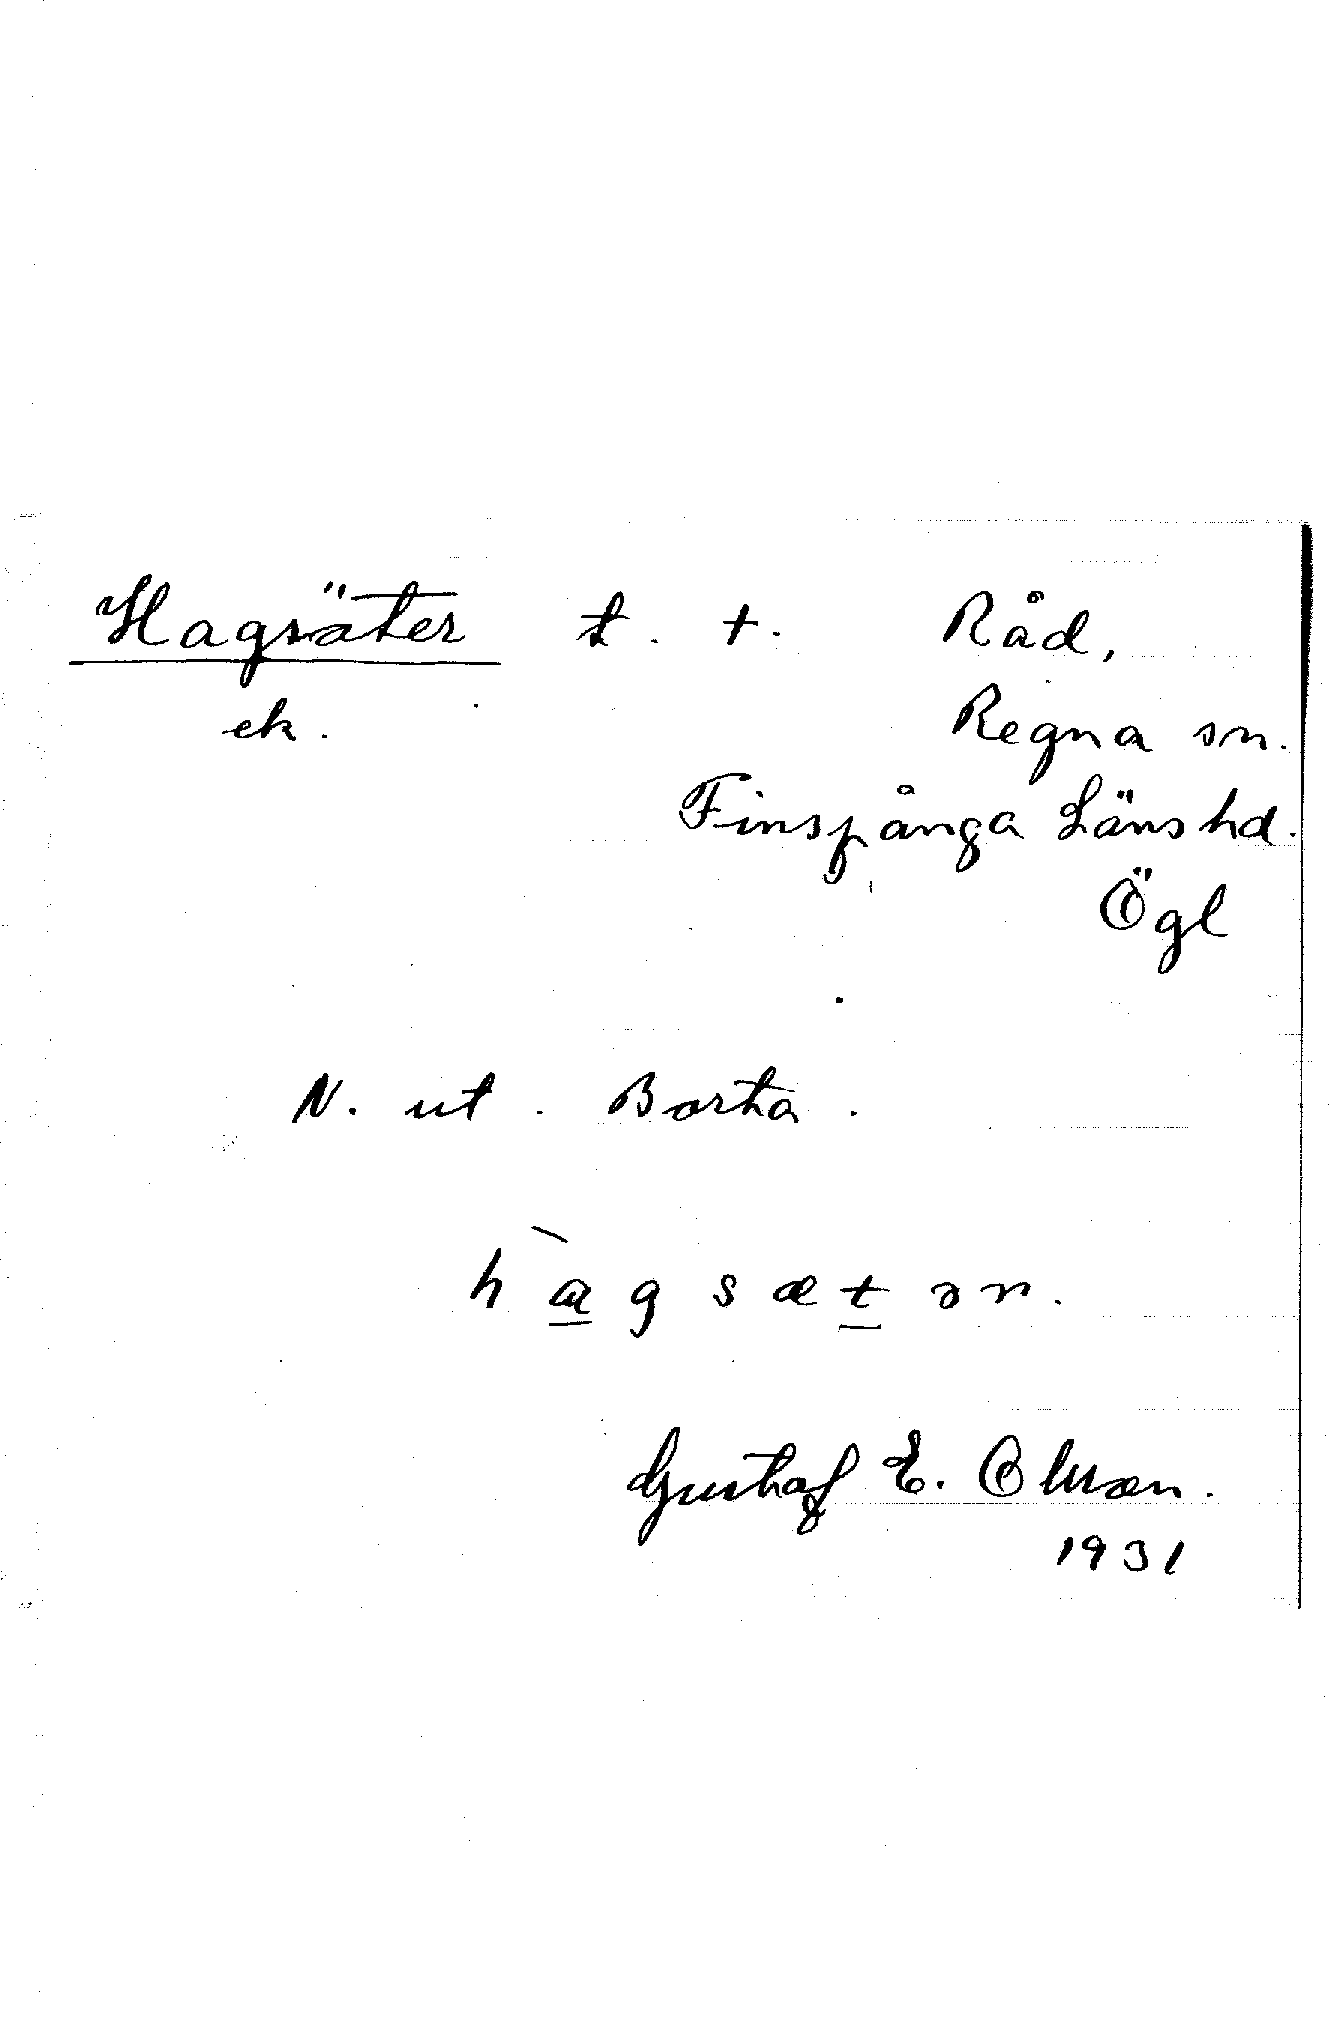 Hagsäter t. +. Råd,
ek. Regna sn.
Finspånga Länshd.
Ögl
N. ut. Borta.
hàgsætər.
Gustaf E. Olsson.
1931